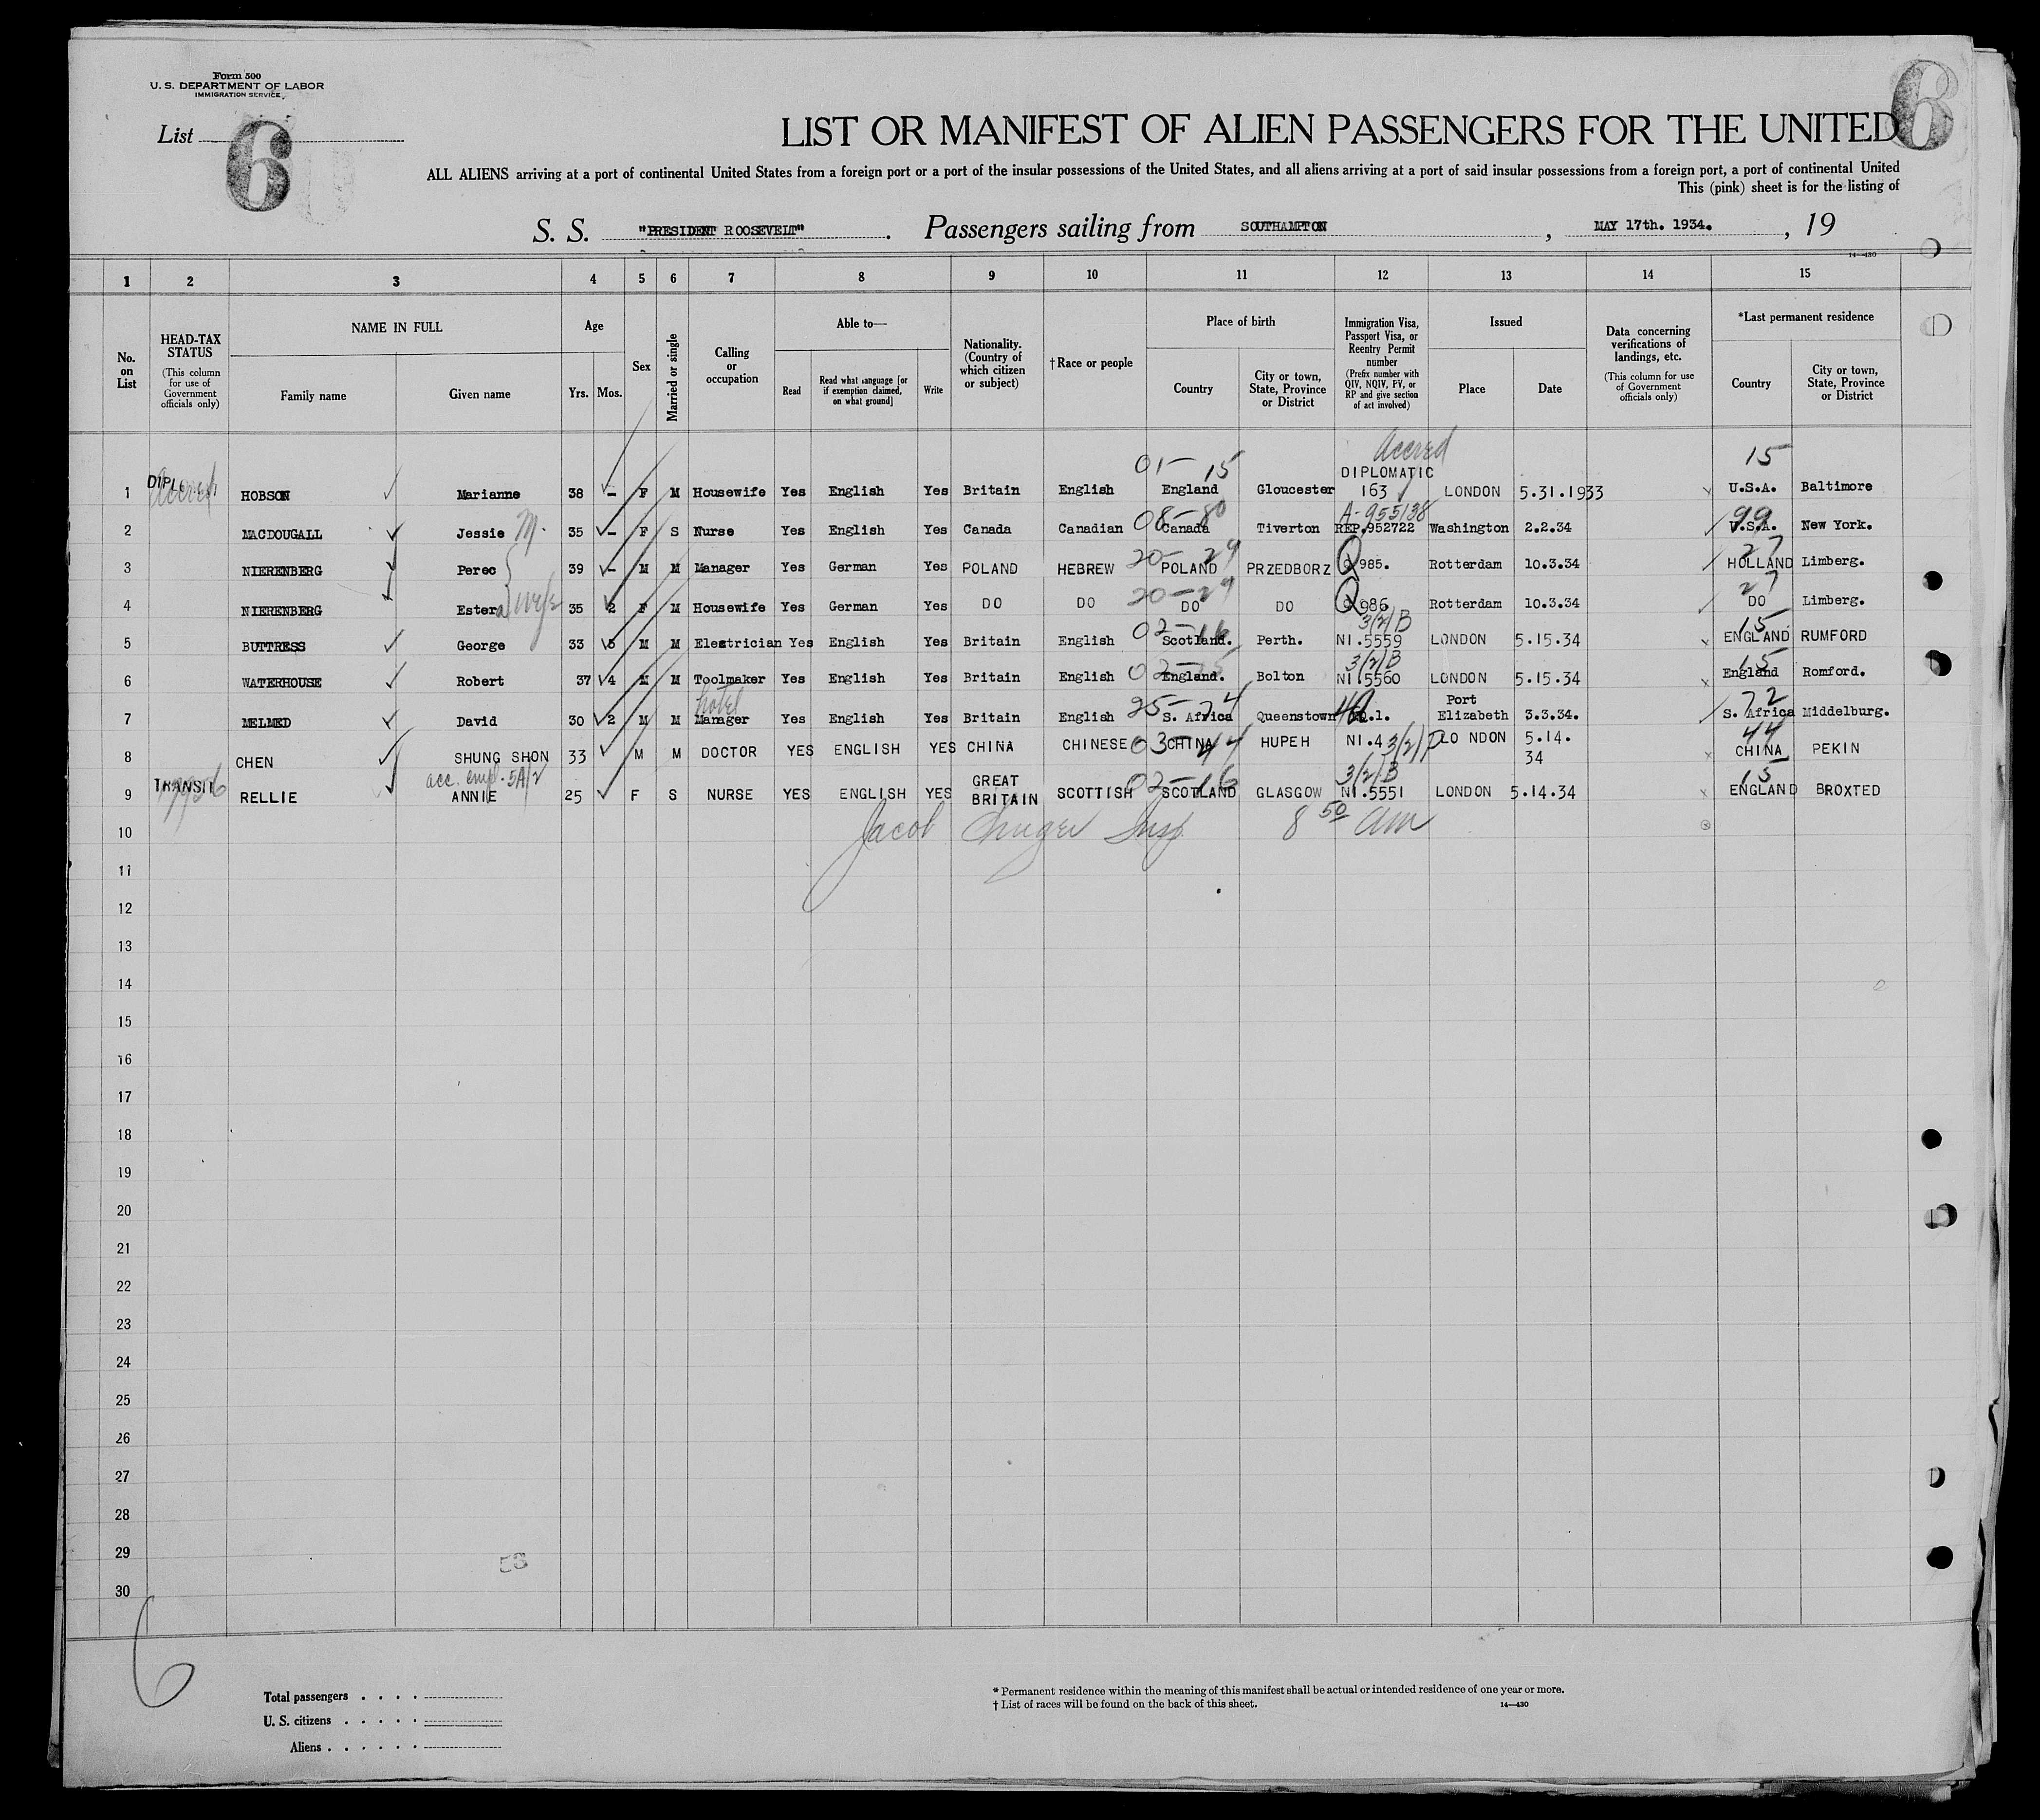 Form 500
U. S. DEPARTMENT OF LABOR
IMMIGRATION SERVICE
List 6
6
LIST OR MANIFEST OF ALIEN PASSENGERS FOR THE UNITED
ALL ALIENS arriving at a port of continental United States from a foreign port or a port of the insular possessions of the United States, and all aliens arriving at a port of said insular possessions from a foreign port, a port of continental United
This (pink) sheet is for the listing of
S. S. "PRESIDENT ROOSEVELT". Passengers sailing from SOUTHAMPTON, MAY 17th. 1934., 19
14—430
1 2 3 4 5 6 7 8 9 10 11 12 13 14 15
No. on List
HEAD-TAX STATUS (This column for use of Government officials only)
NAME IN FULL
Family name Given name
Age
Yrs. Mos.
Sex
Married or single
Calling or occupation
Able to—
Read Read what language [or if exemption claimed, on what ground] Write
Nationality. (Country of which citizen or subject)
† Race or people
Place of birth
Country City or town, State, Province or District
Immigration Visa, Passport Visa, or Reentry Permit number (Prefix number with QIV, NQIV, PV, or RP and give section of act involved)
Issued
Place Date
Data concerning verifications of landings, etc. (This column for use of Government officials only)
*Last permanent residence
Country City or town, State, Province or District
Accred
01-15 15
1 Accred HOBSON Marianne 38 - F M Housewife Yes English Yes Britain English England Gloucester DIPLOMATIC 163 LONDON 5.31.1933 U.S.A. Baltimore
08-80 A-955138 99
2 MACDOUGALL Jessie M. 35 - F S Nurse Yes English Yes Canada Canadian Canada Tiverton REP.952722 Washington 2.2.34 U.S.A. New York.
20-29 27
3 NIERENBERG Perec 39 - M M Manager Yes German Yes POLAND HEBREW POLAND PRZEDBORZ Q 985. Rotterdam 10.3.34 HOLLAND Limberg.
20-29 27
4 NIERENBERG Estera wife 35 2 F M Housewife Yes German Yes DO DO DO DO Q 986 Rotterdam 10.3.34 DO Limberg.
02-16 3/2/B 15
5 BUTTRESS George 33 5 M M Electrician Yes English Yes Britain English Scotland. Perth. NI.5559 LONDON 5.15.34 ENGLAND RUMFORD
02-15 3/2/B 15
6 WATERHOUSE Robert 37 4 M M Toolmaker Yes English Yes Britain English England. Bolton NI.5560 LONDON 5.15.34 England Romford.
hotel 25-74 72
7 MELMED David 30 2 M M Manager Yes English Yes Britain English S. Africa Queenstown Q.1. Port Elizabeth 3.3.34. S. Africa Middelburg.
03-44 3/2/P 44
8 CHEN SHUNG SHON 33 M M DOCTOR YES ENGLISH YES CHINA CHINESE CHINA HUPEH NI.4 LONDON 5.14.34 CHINA PEKIN
acc. empl. 5A/2 02-16 3/2/B 15
9 TRANSIT RELLIE ANNIE 25 F S NURSE YES ENGLISH YES GREAT BRITAIN SCOTTISH SCOTLAND GLASGOW NI.5551 LONDON 5.14.34 ENGLAND BROXTED
10 Jacob Insp 8 50 am
11
12
13
14
15
16
17
18
19
20
21
22
23
24
25
26
27
28
29
30
6
Total passengers . . . .
U. S. citizens . . . . .
Aliens . . . . . .
* Permanent residence within the meaning of this manifest shall be actual or intended residence of one year or more.
† List of races will be found on the back of this sheet.
14—430